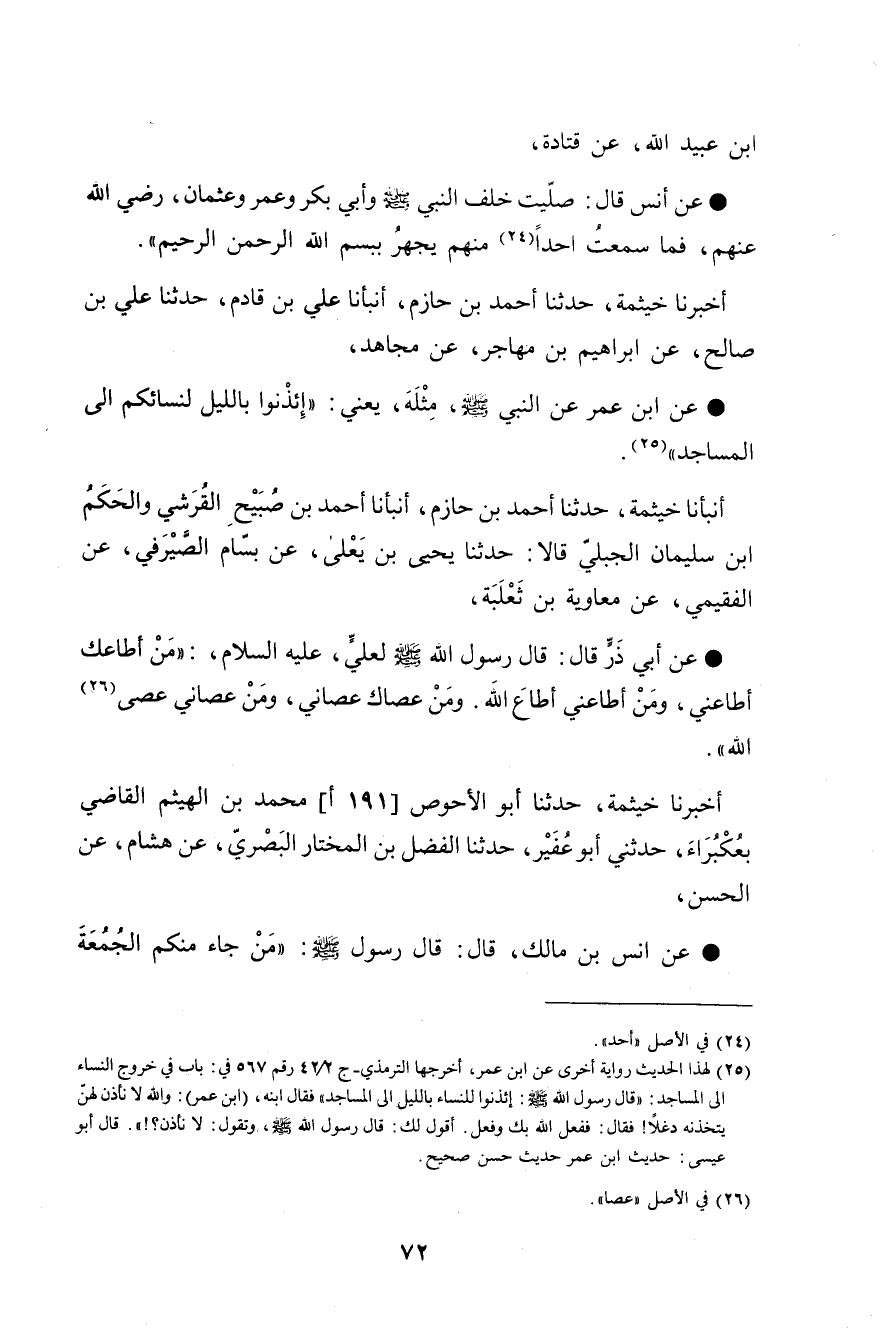 ابن عبيد الله، عن قتادة،
● عن أنس قال: صلّيت خلف النبي ﷺ وأبي بكر وعمر وعثمان، رضي الله
عنهم، فما سمعتُ احداً(٢٤) منهم يجهرُ ببسم الله الرحمن الرحيم».
أخبرنا خيثمة، حدثنا أحمد بن حازم، أنبأنا علي بن قادم، حدثنا علي بن
صالح، عن ابراهيم بن مهاجر، عن مجاهد،
● عن ابن عمر عن النبي ﷺ، مِثْلَهَ، يعني: «إِئذْنوا بالليل لنسائكم الى
المساجد»(٢٥).
أنبأنا خيثمة، حدثنا أحمد بن حازم، أنبأنا أحمد بن صُبَيْحٍ القُرَشي والحَكَمُ
ابن سليمان الجبليّ قالا: حدثنا يحيى بن يَعْلىٰ، عن بسّام الصَّيْرَفي، عن
الفقيمي، عن معاوية بن ثَعْلَبَة،
● عن أبي ذَرٍّ قال: قال رسول الله ﷺ لعليٍّ، عليه السلام، :«مَنْ أطاعك
أطاعني، ومَنْ أطاعني أطاعَ الله. ومَنْ عصاك عصاني، ومَنْ عصاني عصى(٢٦)
الله».
أخبرنا خيثمة، حدثنا أبو الأحوص [١٩١ أ] محمد بن الهيثم القاضي
بعُكْبُرَاءَ، حدثني أبو عُفَيْر، حدثنا الفضل بن المختار البَصْريّ، عن هشام، عن
الحسن،
● عن انس بن مالك، قال: قال رسول ﷺ: «مَنْ جاء منكم الجُمُعَةَ
(٢٤) في الأصل «أحد».
(٢٥) لهذا الحديث رواية أخرى عن ابن عمر، أخرجها الترمذي-ج ٤٢/٢ رقم ٥٦٧ في: باب في خروج النساء
الى المساجد: «قال رسول الله ﷺ: إئذنوا للنساء بالليل الى المساجد» فقال ابنه، (ابن عمر): والله لا نأذن لهنّ
يتخذنه دغلاً! فقال: ففعل الله بك وفعل. أقول لك: قال رسول الله ﷺ، وتقول: لا نأذن؟!». قال أبو
عيسى: حديث ابن عمر حديث حسن صحيح.
(٢٦) في الأصل «عصا».
٧٢